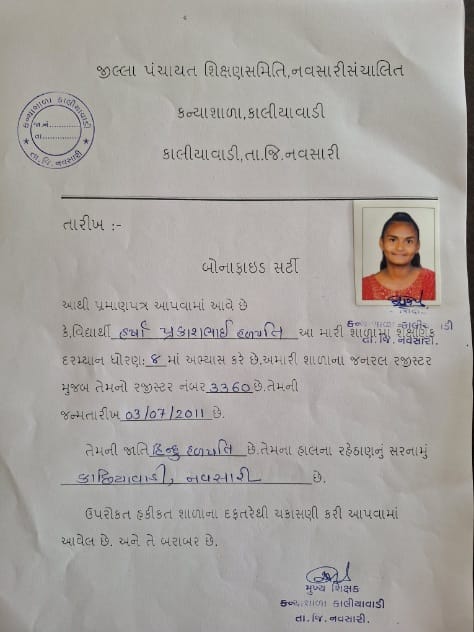 જીલ્લા પંચાયત શિક્ષણસમિતિ,નવસારીસંચાલિત
કન્યાશાળા,કાલીયાવાડી
કાલીયાવાડી,તા.જિ.નવસારી
કન્યાશાળા કાલીયાવાડી
જા.નં.
તા.
તા.જિ. નવસારી
તારીખ :-
બોનાફાઇડ સર્ટી
આથી પ્રમાણપત્ર આપવામાં આવે છે
કે,વિદ્યાર્થી હર્ષા પ્રકાશભાઈ હળપતિ આ મારી શાળામાં શૈક્ષણિક
કન્યાશાળા કાલીયાવાડી
તા.જિ. નવસારી.
દરમ્યાન ધોરણ: 8 માં અભ્યાસ કરે છે.અમારી શાળાના જનરલ રજીસ્ટર
મુજબ તેમનો રજીસ્ટર નંબર 3360 છે.તેમની
જન્મતારીખ 03/07/2011 છે.
તેમની જાતિ હિન્દુ હળપતિ છે.તેમના હાલના રહેઠાણનું સરનામું
કાલિયાવાડી, નવસારી છે.
ઉપરોકત હકીકત શાળાના દફતરેથી ચકાસણી કરી આપવામાં
આવેલ છે. અને તે બરાબર છે.
મુખ્ય શિક્ષક
કન્યાશાળા કાલીયાવાડી
તા.જિ. નવસારી.